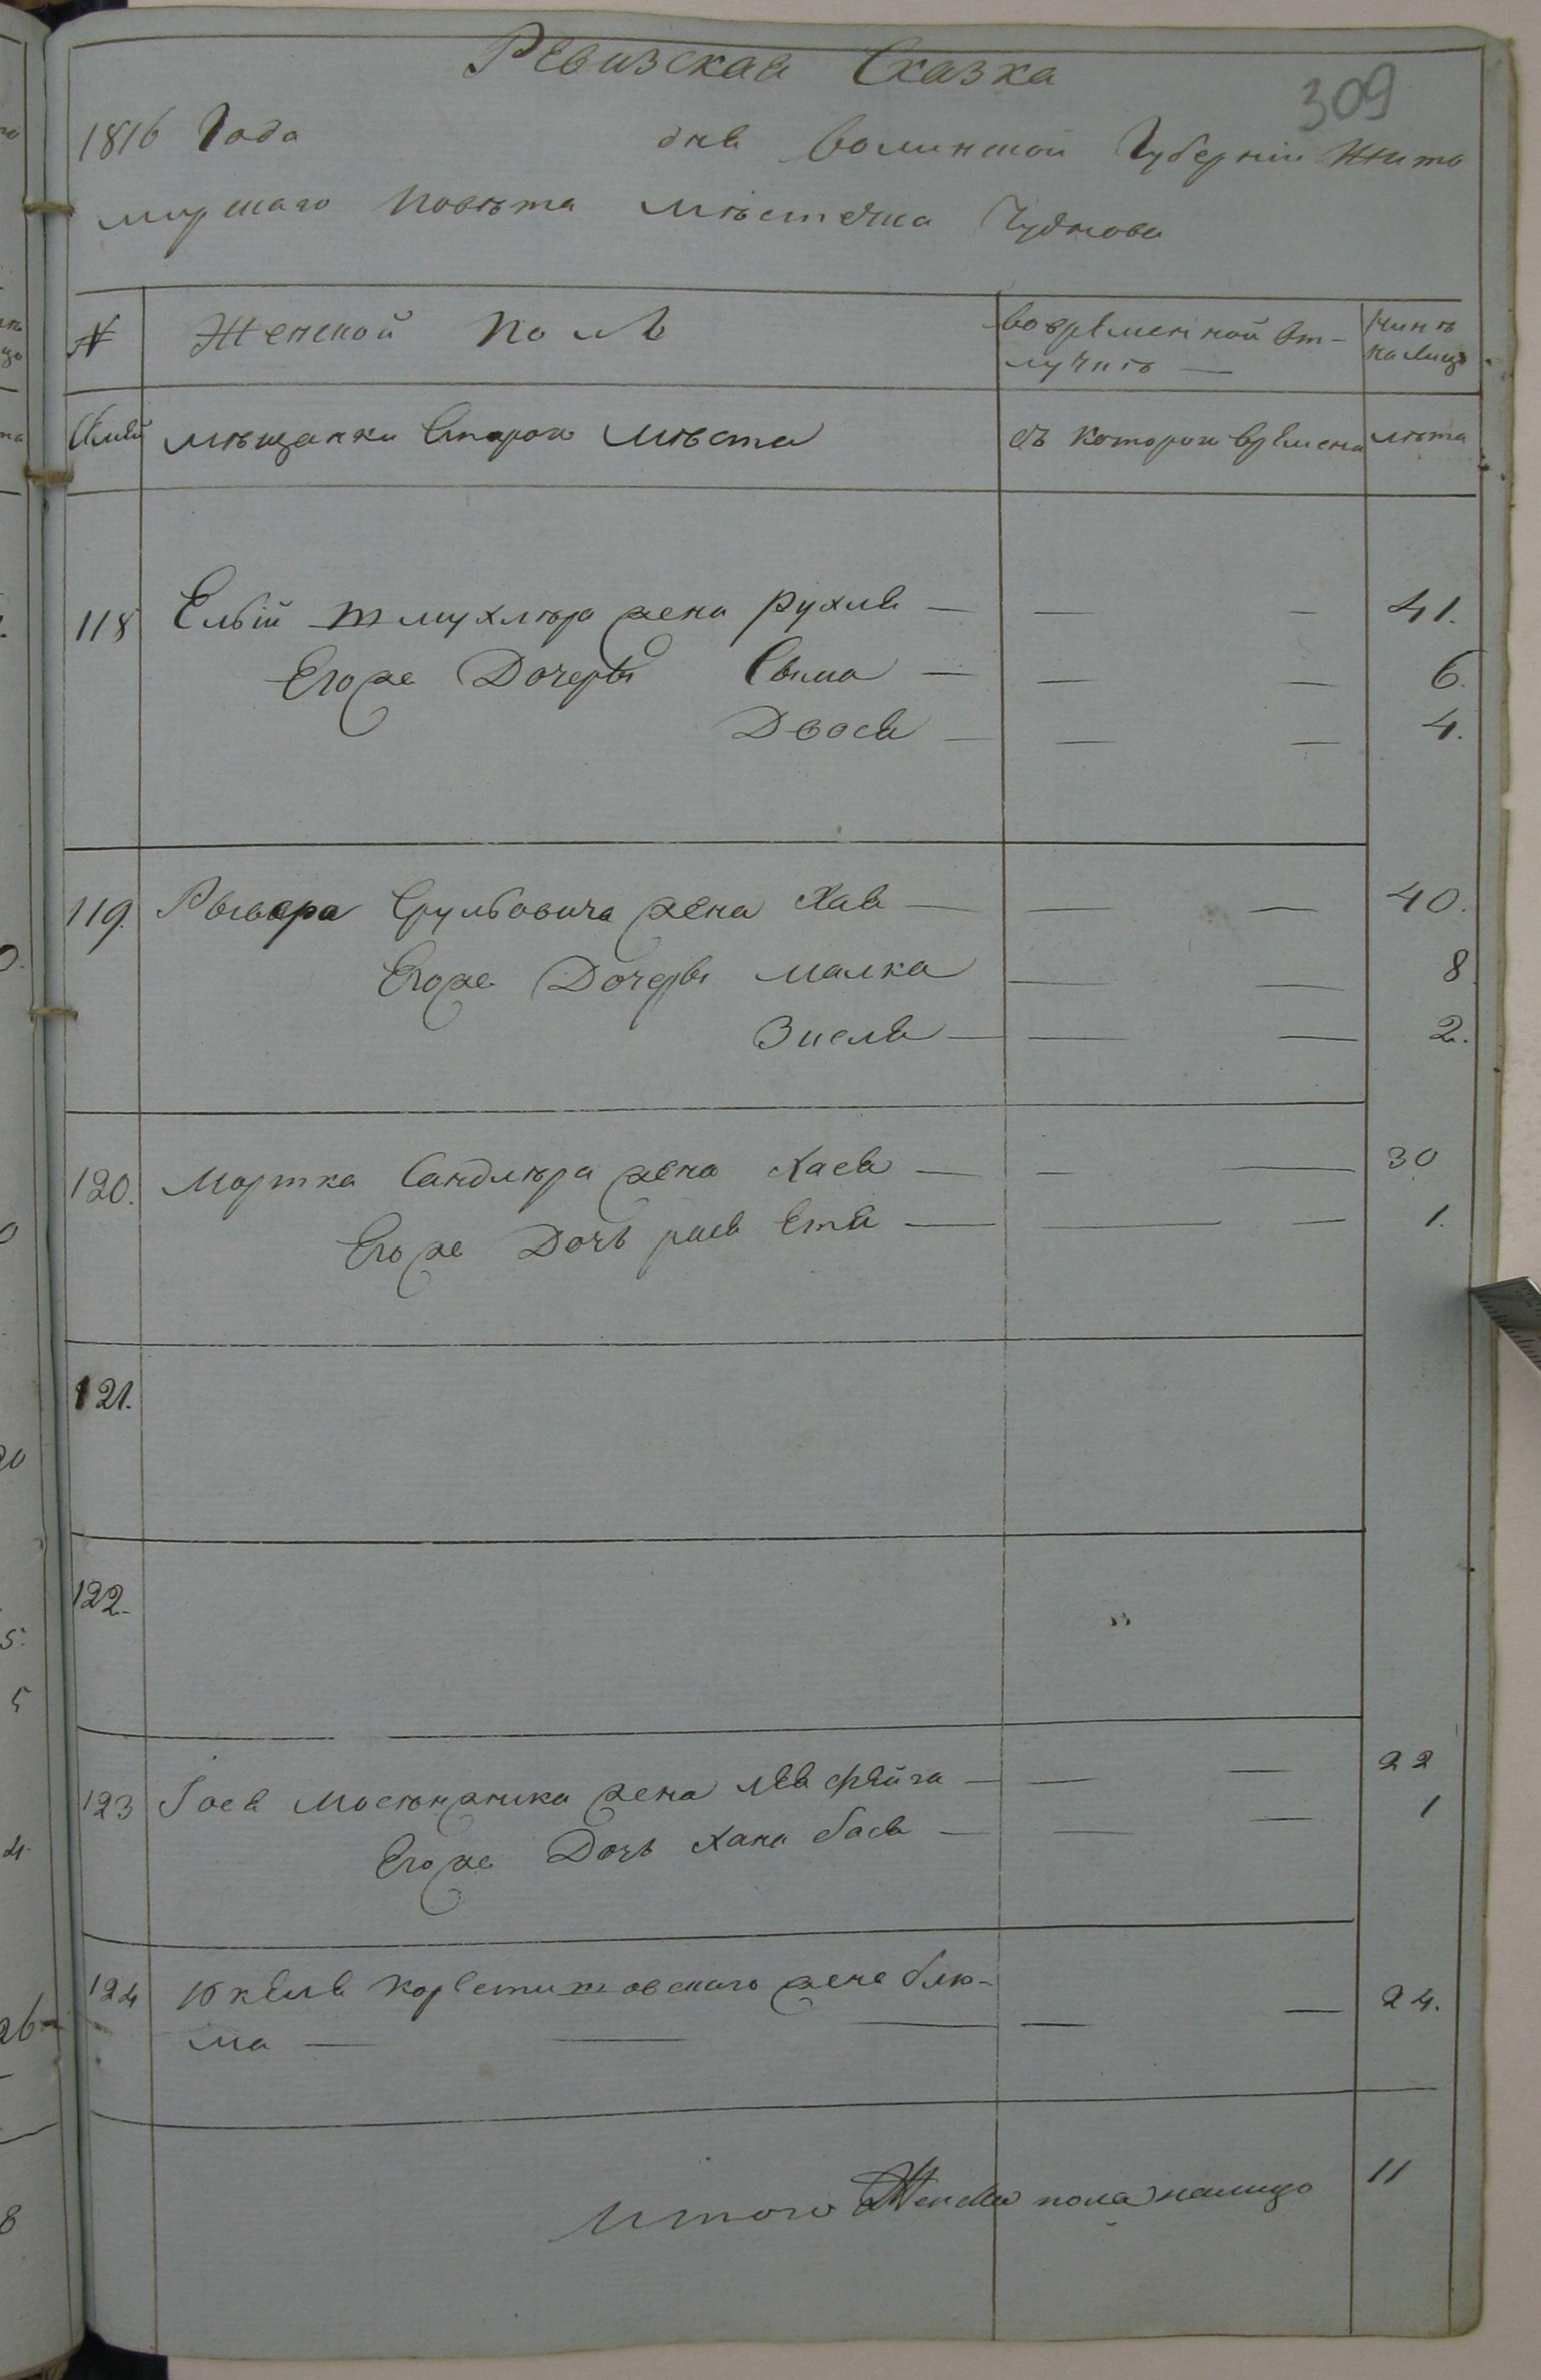 Ревизская Сказка
309
1816 Года дня Волинской Губернии Жито
мирскаго Повѣта мѣстечка Чуднова
№ Женской Полъ Во временной от-
лучкѣ — нинѣ
на лицо
Семьи мѣщанки Старои Мѣста съ которои времени лѣта
118 Елыи Шмухлѣра жена Рухля — — — 41.
Егоже Дочеры Сыма — — — 6.
Двося — — — 4.
119. Срулевича жена Хая — — — 40.
Егоже Дочеры Малка — — 8
Зисля — — — 2.
120. Мортка Сандлѣра жена Хася — — — 30
Егоже Дочь Рася Етя — — — 1.
121.
122.
123 Гося жена Лея Фейга — — — 22
Егоже Дочь Хана Бася — — — 1
124 Юкеля жена Блю-
ма — — — — — 24.
Итого Женска пола налицо 11